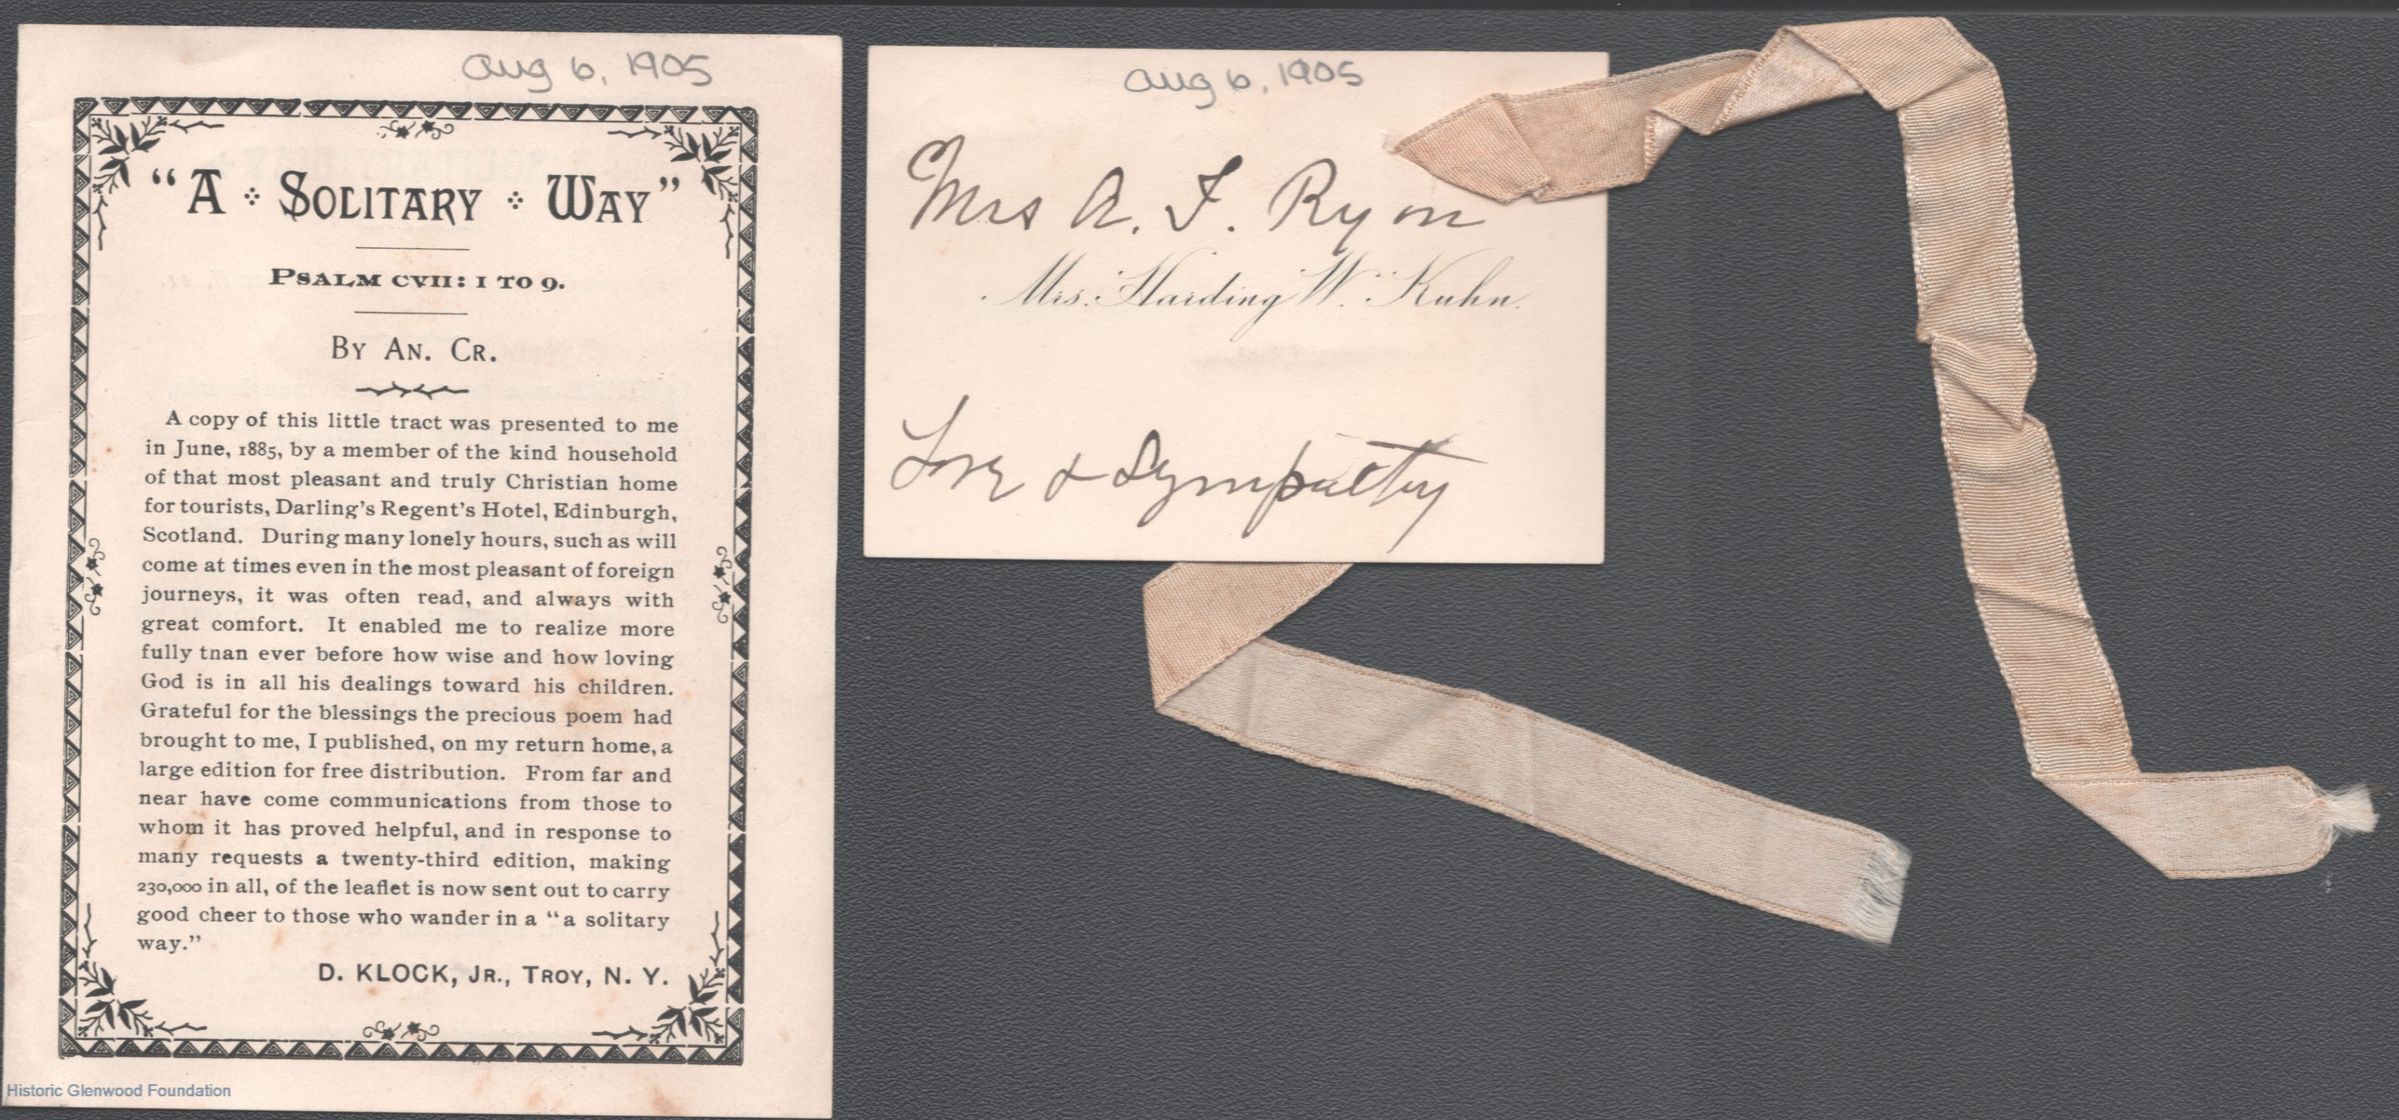 Aug 6, 1905
"A Solitary Way"
Psalm CVII: 1 to 9.
By An. Cr.
A copy of this little tract was presented to me
in June, 1885, by a member of the kind household
of that most pleasant and truly Christian home
for tourists, Darling's Regent's Hotel, Edinburgh,
Scotland. During many lonely hours, such as will
come at times even in the most pleasant of foreign
journeys, it was often read, and always with
great comfort. It enabled me to realize more
fully tnan ever before how wise and how loving
God is in all his dealings toward his children.
Grateful for the blessings the precious poem had
brought to me, I published, on my return home, a
large edition for free distribution. From far and
near have come communications from those to
whom it has proved helpful, and in response to
many requests a twenty-third edition, making
230,000 in all, of the leaflet is now sent out to carry
good cheer to those who wander in a "a solitary
way."
D. KLOCK, Jr., Troy, N. Y.
Historic Glenwood Foundation
Aug 6, 1905
Mrs A. F. Ryon
Mrs. Harding W. Kuhn.
Love & Sympathy